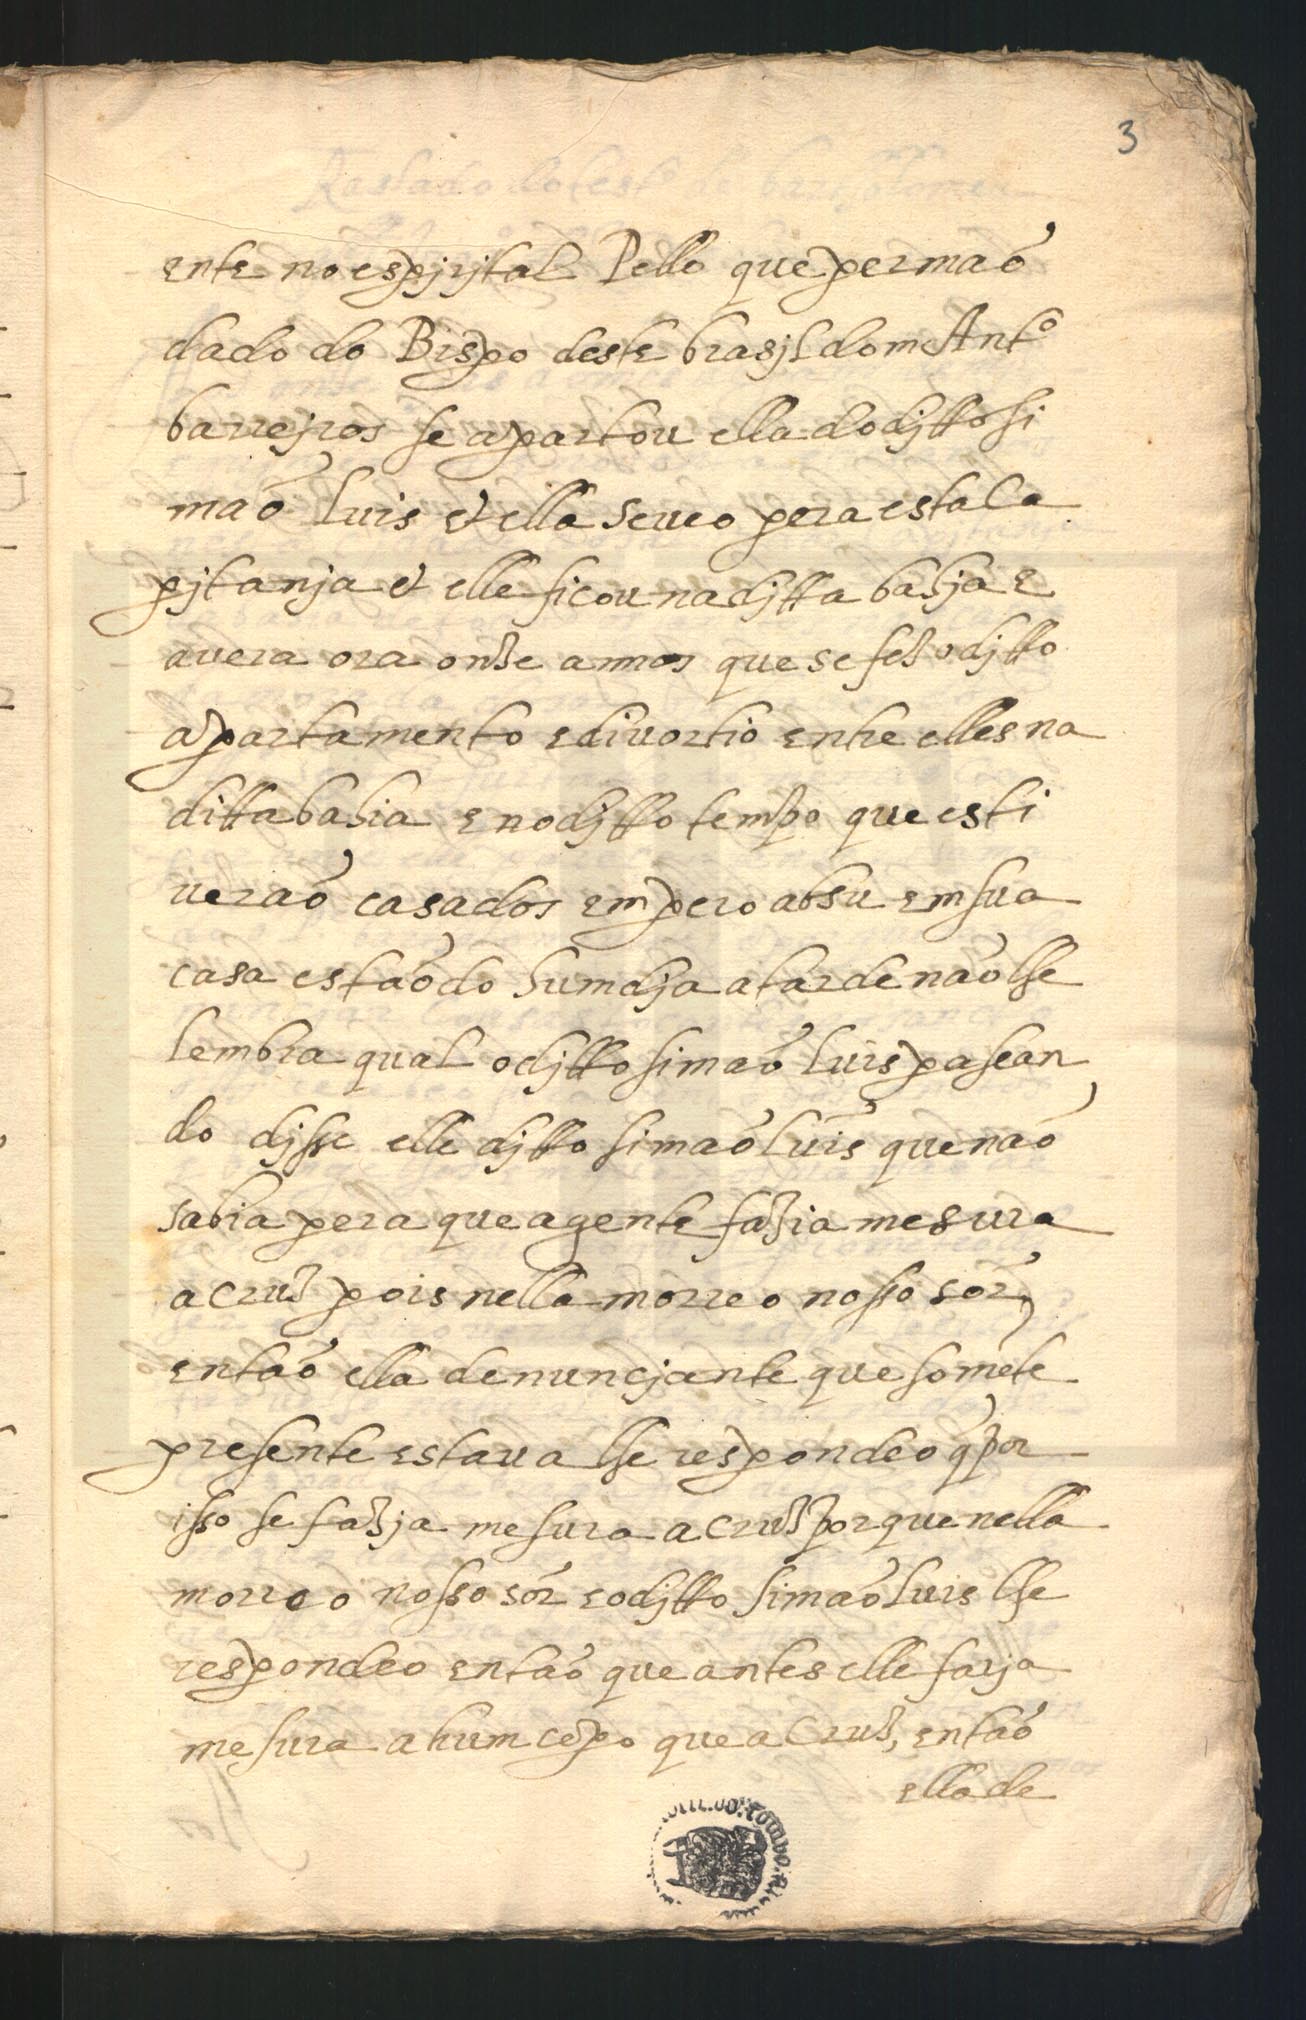 3
ente no espjrjtal Pello que per maõ
dado do Bispo deste brasjl dom Ant.º
barrejros se apartou ella do djtto si
maõ luis et ella se ueo pera esta Ca
pjtanja et elle ficou na djtta bahja e
auera ora onze annos que se fez o djtto
apartamento e diuortio entre elles na
ditta bahia e no djtto tempo que esti
ueraõ casados em pero absu em sua
casa estaõdo hum dja a tarde naõ lhe
lembra qual o djtto simaõ luis pasean
do djsse elle djtto simaõ luis que naõ
sabia pera que a gente fazia mesura
a cruz pois nella morreo nosso sõr,
entaõ ella denuncjante que somẽte
presente estaua lhe respondeo q̃ por
isso se fazja mesura a cruz porque nella
morreo nosso sõr e o djtto simaõ luis lhe
respondeo entaõ que antes elle farja
mesura a hum cepo que a Cruz, entaõ
ella de